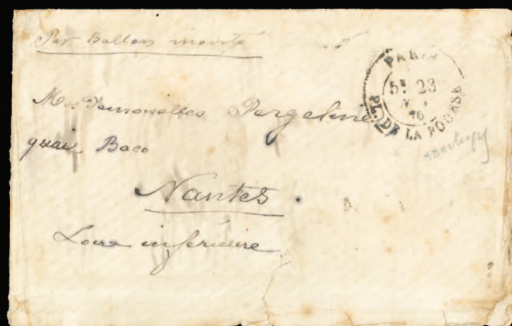 Par Ballon monté
PARIS
5E 23
70
PL. DE LA BOURSE
Mesdemoiselles Pergeline
quai Baco
Nantes
Loire inférieure